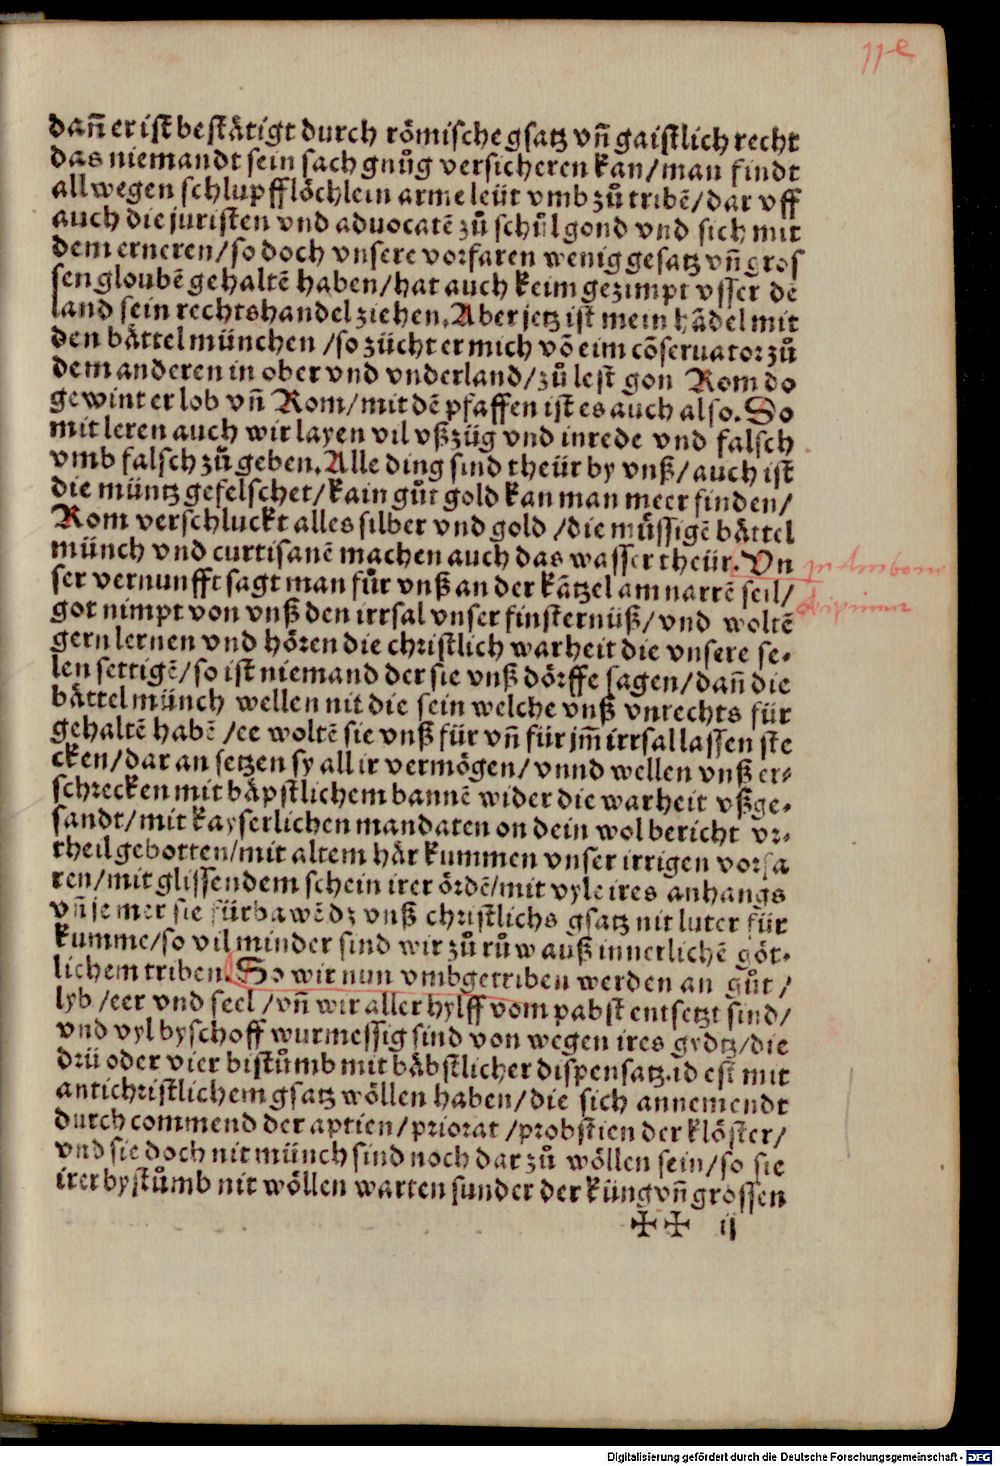 11e
dañ er ist bestätigt durch römische gsatz vñ gaistlich recht
das niemandt sein sach gnůg versicheren kan/man findt
allwegen schlupfflöchlein arme leüt vmb zů tribē/dar vff
auch die juristen vnd aduocatē zů schůl gond vnd sich mit
dem erneren/so doch vnsere vorfaren wenig gesatz vñ gros
sen gloubē gehaltē haben/hat auch keim gezimpt vsser dē
land sein rechtshandel ziehen. Aber jetz ist mein hādel mit
den bättel münchen /so zücht er mich vō eim cōseruator zů
dem anderen in ober vnd vnderland/zů lest gon Rom do
gewint er lob vñ Rom/mit dē pfaffen ist es auch also. So
mit leren auch wir layen vil vßzüg vnd inrede vnd falsch
vmb falsch zů geben. Alle ding sind theür by vnß/auch ist
die müntz gefelschet/kain gůt gold kan man meer finden/
Rom verschluckt alles silber vnd gold /die müssigē bättel
münch vnd curtisanē machen auch das wasser theür. Vn
ser vernunfft sagt man für vnß an der kātzel am narrē seil/
got nimpt von vnß den irrsal vnser finsternüß/vnd woltē
gern lernen vnd hören die christlich warheit die vnsere se-
len settigē/so ist niemand der sie vnß dörffe sagen/dañ die
bättel münch wellen nit die sein welche vnß vnrechts für
gehaltē habē /ee woltē sie vnß für vñ für jm̄ irrsal lassen ste
cken/dar an setzen sy all ir vermögen/vnnd wellen vnß er-
schrecken mit bäpstlichem bannē wider die warheit vßge-
sandt/mit kayserlichen mandaten on dein wol bericht vr-
theil gebotten/mit altem här kummen vnser irrigen vorfa
ren/mit glissendem schein irer ördē/mit vyle ires anhangs
vñ je mer sie fürbawē dz vnß christlichs gsatz nit luter für
kumme/so vil minder sind wir zů růw auß innerlichē göt-
lichem triben. So wir nun vmbgetriben werden an gůt/
lyb /eer vnd seel /vñ wir aller hylff vom pabst entsetzt sind/
vnd vyl byschoff wurmessig sind von wegen ires gydtz/die
drü oder vier bistůmb mit bäbstlicher dispensatz.id est mit
antichristlichem gsatz wöllen haben/die sich annemendt
durch commend der aptien/priorat /probstien der klöster/
vnd sie doch nit münch sind noch dar zů wöllen sein/so sie
irer bystůmb nit wöllen warten sunder der küng vñ grossen
✠✠ ij
Digitalisierung gefördert durch die Deutsche Forschungsgemeinschaft - DFG